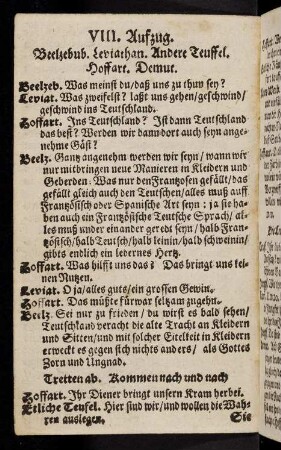 VIII. Aufzug.
Beelzebub. Leviathan. Andere Teuffel.
Hoffart. Demut.
Beelzeb. Was meinst du/daß uns zu thuv sey?
Leviat. Was zweifelst? laßt uns gehen/geschwind/
geschwind ins Teutschland.
Hoffart. Ins Teutschland? Ist dann Teutschland
das best? Werden wir dann dort auch seyn ange-
nehme Gäst?
Beelz. Gantz angenehm werden wir seyn/wann wir
nur mitbringen neue Manieren in Kleidern und
Geberden: Was nur den Frantzosen gefällt/das
gefällt gleich auch den Teutschen/alles muß auff
Frantzösisch oder Spanische Art seyn: ja sie ha-
ben auch ein Frantzösische Teutsche Sprach/al-
les muß unter einander geredt seyn/halb Fran-
tzösisch/halb Teutsch/halb leinin/halb schweinin/
gibts endlich ein ledernes Hertz.
Hoffart. Was hilfft uns das? Das bringt uns kei-
nen Nutzen.
Leviat. O ja/alles guts/ein grossen Gewin.
Hoffart. Das müßte fürwar seltzam zugehn.
Beelz. Sei nur zu frieden/du wirst es bald sehen/
Teutschland veracht die alte Tracht an Kleidern
und Sitten/und mit solcher Eitelkeit in Kleidern
erweckt es gegen sich nichts anders/als Gottes
Zorn und Ungnad.
Tretten ab. Kommen nach und nach
Hoffart. Ihr Diener bringt unsern Kram herbei.
Etliche Teufel. Hier sind wir/und wollen die Wah-
ren auslegen.
Sie